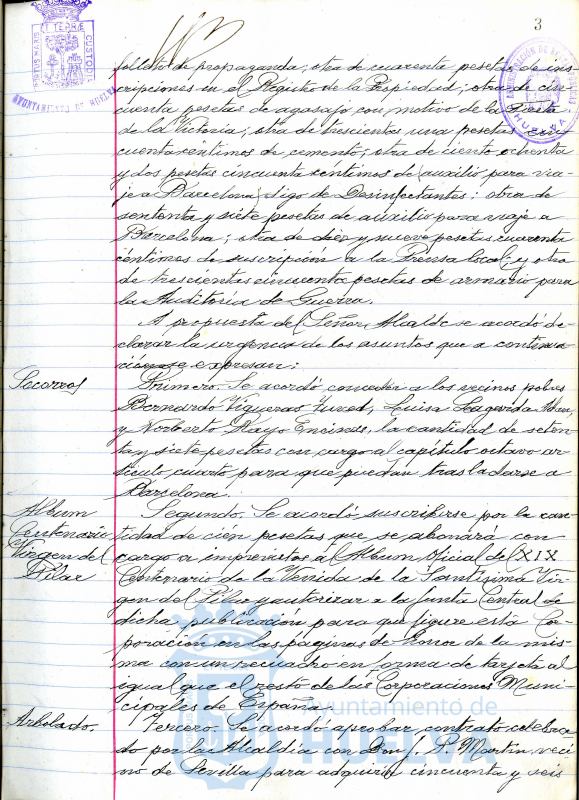 3
folleto de propaganda; otra de cuarenta pesetas de ins-
cripciones en el Registro de la Propiedad; otra de cin-
cuenta pesetas de agasajo con motivo de la Fiesta
de la Victoria; otra de trescientas una pesetas cin-
cuenta céntimos de cemento; otra de ciento ochenta
y dos pesetas cincuenta céntimos de auxilio para via-
je a Barcelona digo de Desinfectantes; otra de
sententa y siete pesetas de auxilio para viaje a
Barcelona; otra de diez y nueve pesetas cuarenta
céntimos de suscripción a la Prensa local; y otra
de trescientas cincuenta pesetas de armario para
la Auditoria de Guerra.
A propuesta del Señor Alcalde se acordó de-
clarar la urgencia de los asuntos que a continua-
ción se expresan:
Socorros
Primero. Se acordó conceder a los vecinos pobres
Bernardo Figueras, Luisa
y Norberto Mayo Encinas, la cantidad de seten-
ta y siete pesetas con cargo al capítulo octavo ar-
tículo cuarto para que puedan trasladarse a
Barcelona.
Album
Centenario
Virgen del
Pilar
Segundo. Se acordó suscribirse por la can-
tidad de cien pesetas que se abonará con
cargo a imprevistos al Album Oficial del XIX
Centenario de la Venida de la Santísima Vir-
gen del Pilar y autorizar a la Junta Central de
dicha publicación para que figure esta Cor-
poración en las páginas de honor de la mis-
ma con un recuadro en forma de tarjeta al
igual que el resto de las Corporaciones Muni-
cipales de España.
Arbolado.
Tercero. Se acordó aprobar contrato celebra-
do por la Alcaldía con Don J. P. Martin, veci-
no de Sevilla para adquirir cincuenta y seis
AYUNTAMIENTO DE HUELVA
PORTUS MARIS ET TERRE CUSTODIA
HUELVA
Ayuntamiento de
HUELVA